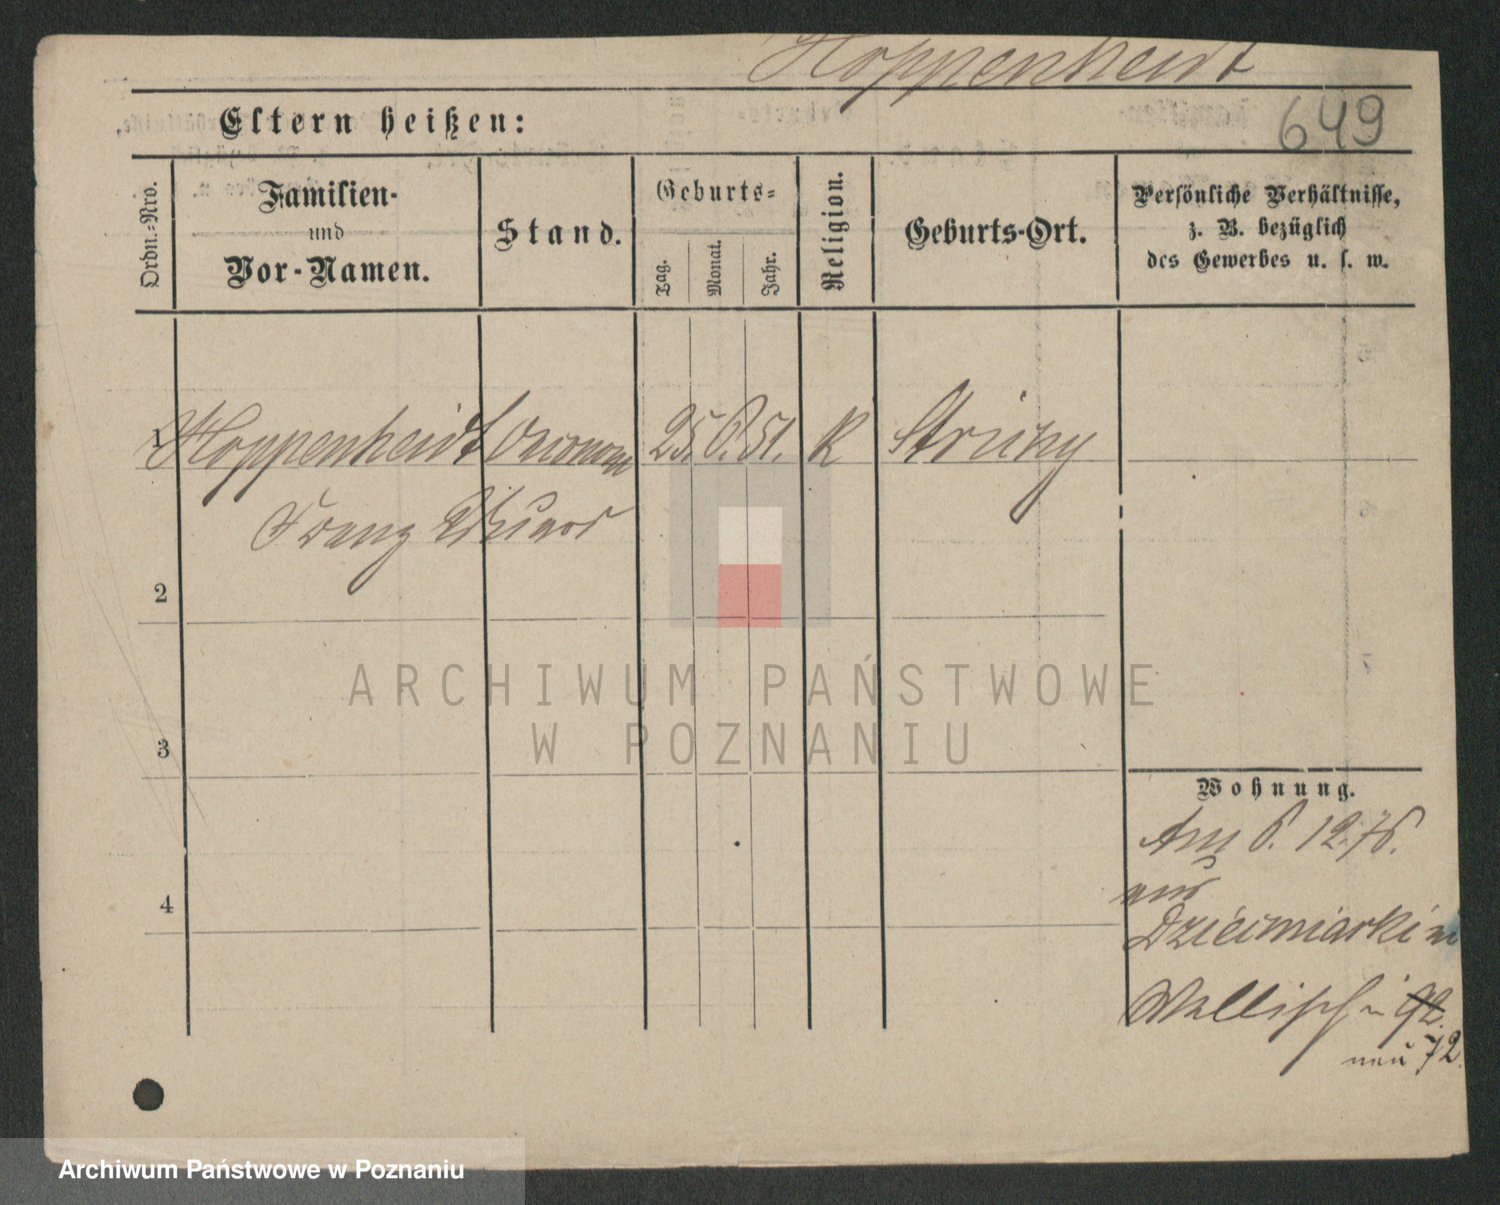 Hoppenheidt
649
Eltern heißen:
Ordn.-Nro.
Familien-
und
Vor-Namen.
Stand.
Geburts-
Tag.
Monat.
Jahr.
Religion.
Geburts-Ort.
Persönliche Verhältnisse,
z. B. bezüglich
des Gewerbes u. s. w.
1 Hoppenheidt Oeconom 25. 6. 51. K
Franz Eduard
2
ARCHIWUM PAŃSTWOWE
W POZNANIU
3
Wohnung.
Am 6. 12. 76.
aus
Dziećmiarki
Wallisch
neu 72.
4
Archiwum Państwowe w Poznaniu